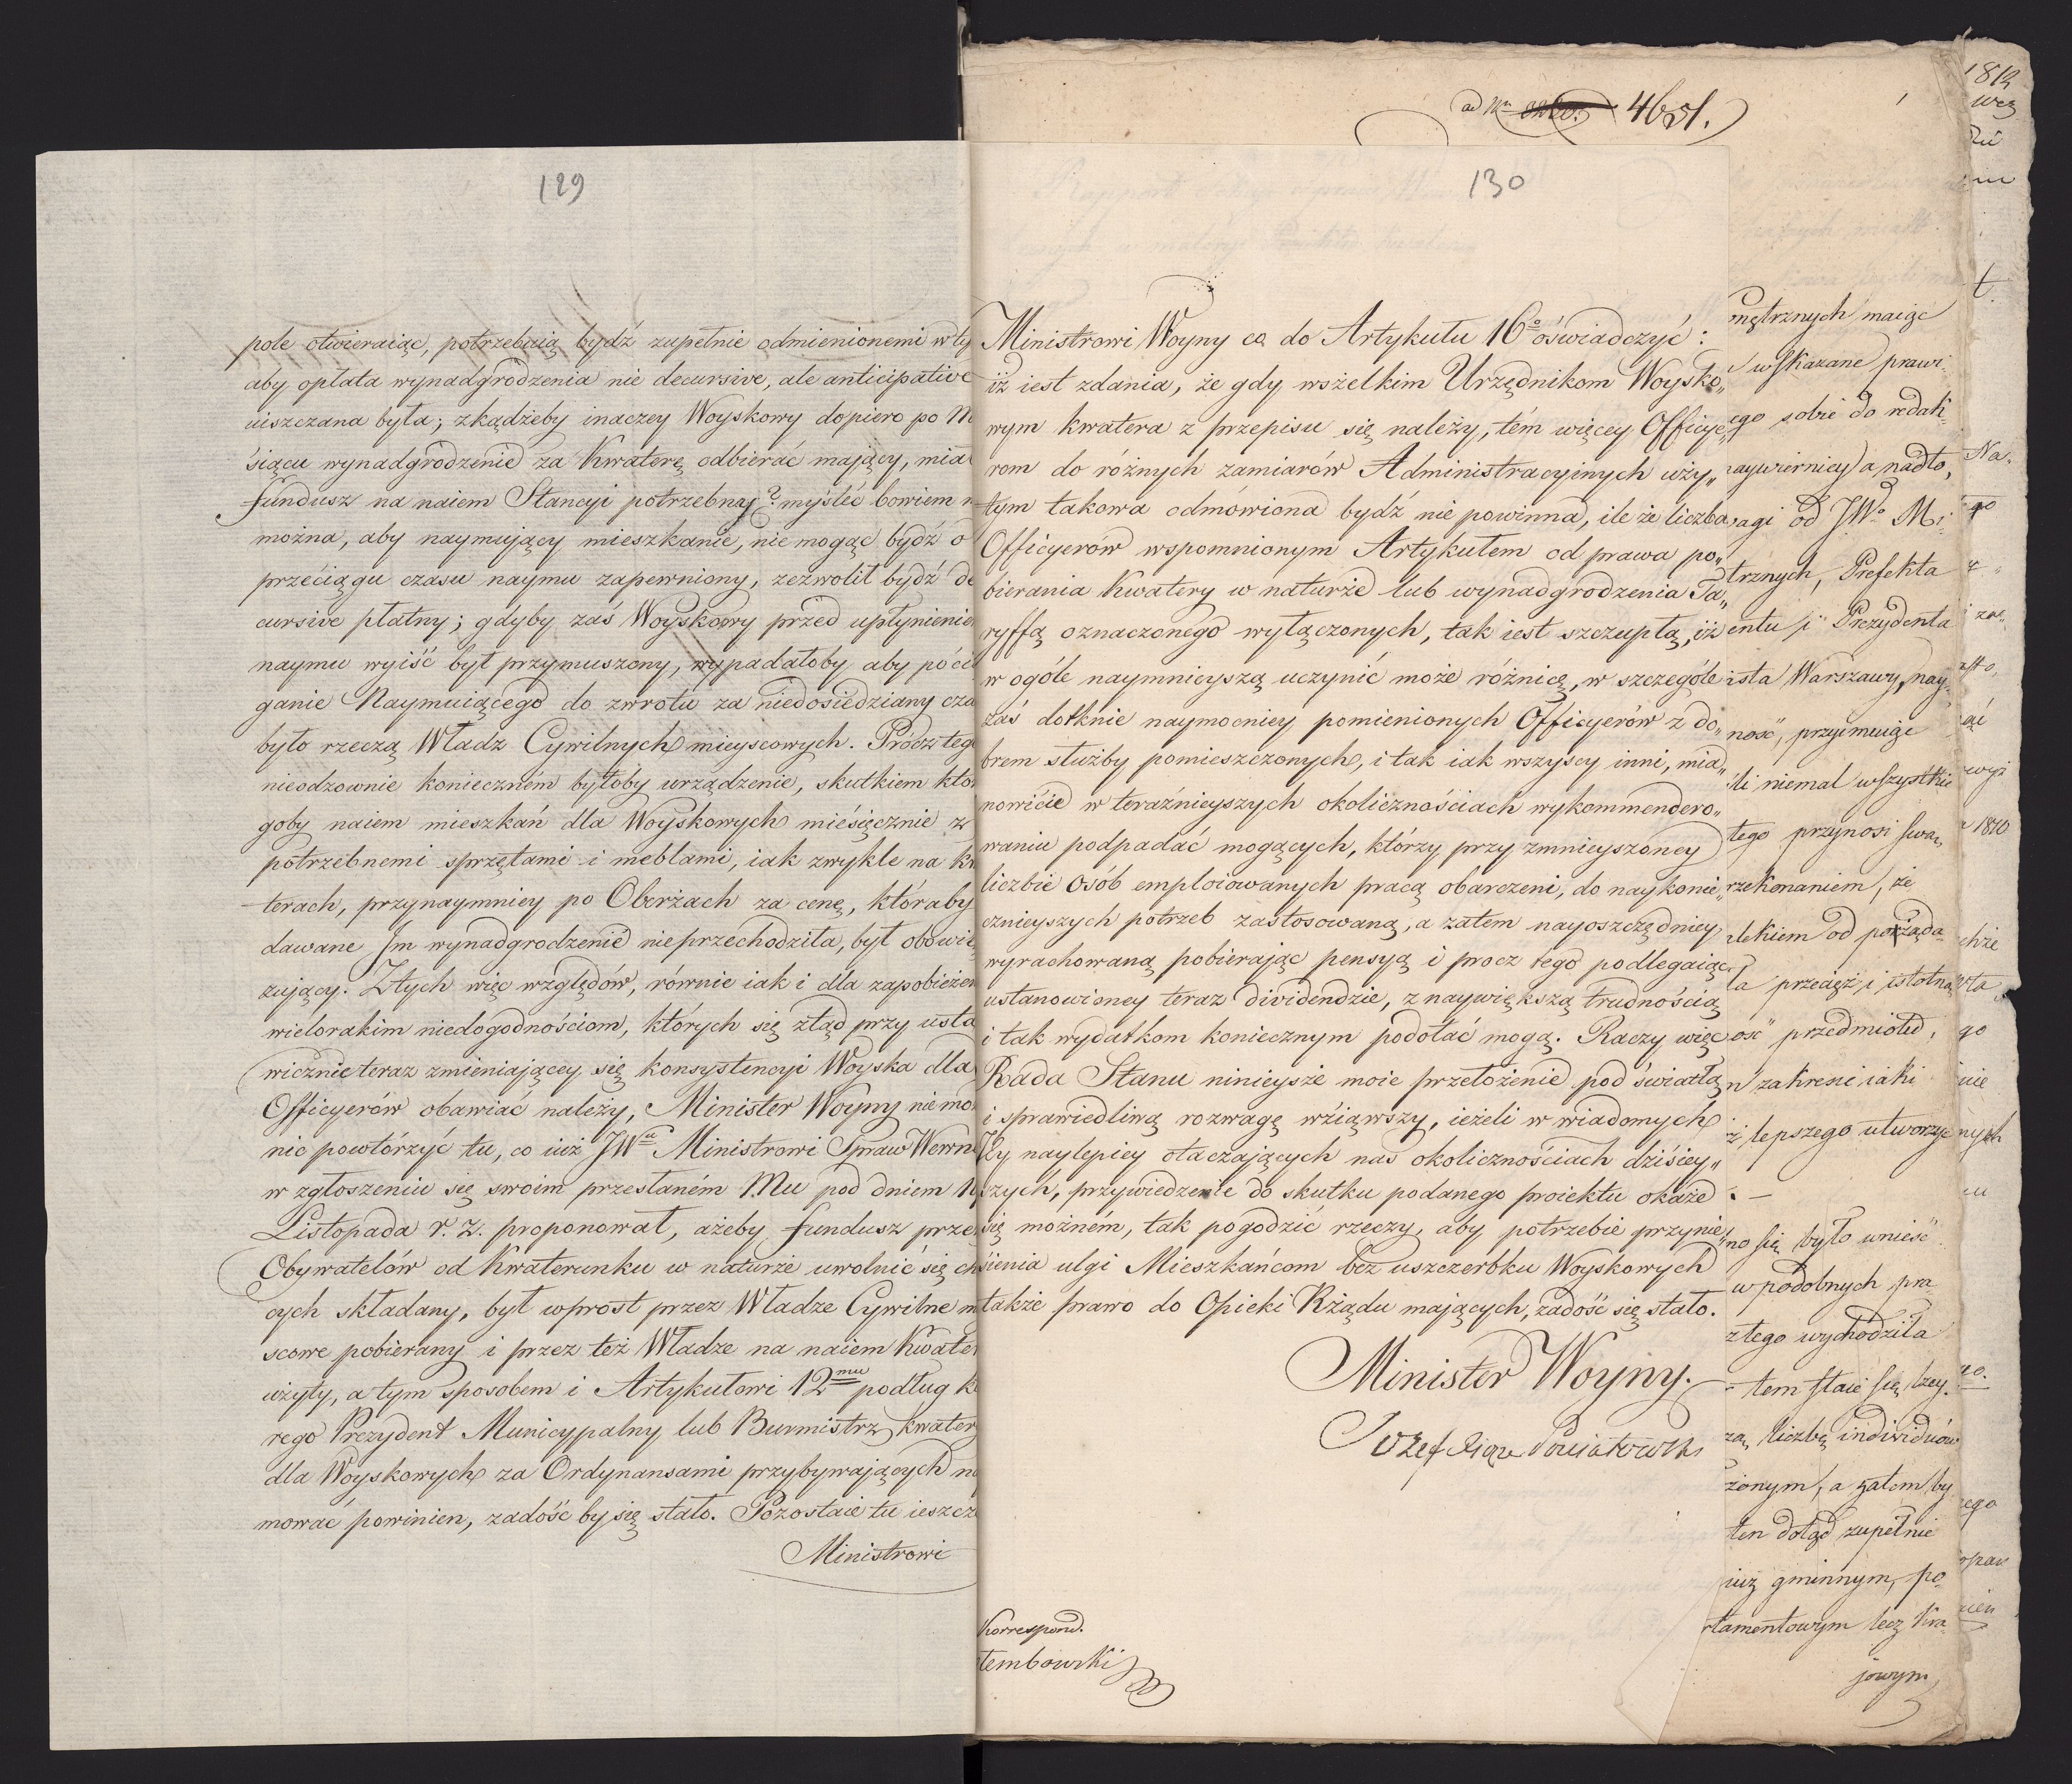 129
pole otwieraiąc, potrzebuią bydź zupełnie odmienionemi w ty
aby opłata wynadgrodzenia nie decursive, ale anticipative
uiszczana była; zkądżeby inaczey Woyskowy dopiero po M
siącu wynadgrodzenie za Kwaterę odbierać maiący, mia
fundusz na naiem Stancyi potrzebny? myśleć bowiem n
można, aby naymuiący mieszkanie, nie mogąc bydź o
przeciągu czasu naymu zapewniony, zezwolił bydź de
cursive płatny; gdyby zaś Woyskowy przed upłynienie
naymu wyiść był przymuszony, wypadałoby aby pócią
ganie Naymuiącego do zwrotu za niedosiedziany cza
było rzeczą Władz Cywilnych mieyscowych. Prócz teg
nieodzownie konieczném byłoby urządzenie, skutkiem któ
goby naiem mieszkań dla Woyskowych miésięcznie z
potrzebnemi sprzętami i meblami, iak zwykle na kw
terach, przynaymniey po Oberżach za cenę, któraby
dawane Im wynadgrodzenie nieprzechodziła, był obowię
zuiący. Z tych więc względów, równie iak i dla zapobieżen
wielorakim niedogodnościom, których się ztąd przy usta
wicznie teraz zmieniaiącey się konsystencyi Woyska dla
Officyerów obawiać należy, Minister Woyny nie mo
nic powtórzyć tu, co iuż JWu Ministrowi Spraw Wewn
w zgłoszeniu się swoim przesłaném Mu pod dniem 1
Listopada r. z. proponował, ażeby fundusz prze
Obywatelów od Kwaterunku w naturze uwolnić się ch
cych składany, był wprost przez Władze Cywilne m
scowe pobierany i przez też Władze na naiem Kwater
użyty, a tym sposobem i Artykułowi 12mu podług k
rego Prezydent Municypalny lub Burmistrz kwater
dla Woyskowych za Ordynansami przybywaiących na
mować powinien, zadość by się stało. Pozostaie tu ieszcze
Ministrowi
ad Nr 4651.
130
Ministrowi Woyny co do Artykułu 16o oświadczyć:
iż iest zdania, że gdy wszelkim Urzędnikom Woysko„
wym kwatera z przepisu się należy, tém więcey Officye„
rom do różnych zamiarów Administracyinych uży„
tym takowa odmówiona bydź nie powinna, ile że liczba
Officyerów wspomnionym Artykułem od prawa po„
bierania Kwatery w naturze lub wynadgrodzenia Ta„
ryffą oznaczonego wyłączonych, tak iest szczupłą, iż
w ogóle naymnieyszą uczynić może różnicę, w szczególe
zaś dotknie naymocniey pomienionych Officyerów z do„
brem służby pomieszczonych, i tak iak wszyscy inni, mia„
nowicie w teraźnieyszych okolicznościach wykommendero„
waniu podpadać mogących, którzy przy zmnieyszoney
liczbie osób emploiowanych pracą obarczeni, do naykonie„
cznieyszych potrzeb zastosowaną, a zatem nayoszczędniey
wyrachowaną pobieraiąc pensyą i prócz tego podlegaiąc
ustanowioney teraz dividendzie, z naywiększą trudnością
i tak wydatkom koniecznym podołać mogą. Raczy więc
Rada Stanu ninieysze moie przełożenie pod światłą
i sprawiedliwą rozwagę wziąwszy, ieżeli w wiadomych
Jéy naylepiey otaczaiących nas okolicznościach dzisiey„
szych, przywiedzenie do skutku podanego proiektu okaże
się możném, tak pogodzić rzeczy, aby potrzebie przynie„
sienia ulgi Mieszkańcom bez uszczerbku Woyskowych
także prawo do Opieki Rządu maiących, zadość się stało.
Minister Woyny.
Józef Xiąże Poniatowski
Korrespond.
tembowski
nętrznych maiąc
wskazane prawi
ego sobie do redak
naywierniey) a nadto,
agi od JWo Mi
trznych, Prefekta
entu i Prezydenta
ista Warszawy, nay
ność, przyimuiąc
li niemal wszystkie
tego przynosi
rzekonaniem, że
lekiem od pożąda
ta przecięż i istotna
ość przedmiotu,
n zakresie iaki
ż lepszego utworzyć
no się było wnieść
w podobnych pra
z tego wychodziła
tem staie się
za, liczbę individuów
żonym, a zatem by
ten dotąd zupełnie
iuż gminnym, po
rtamentowym lecz kra
jowym,
1812
Na
go
1810
go
nych
ego